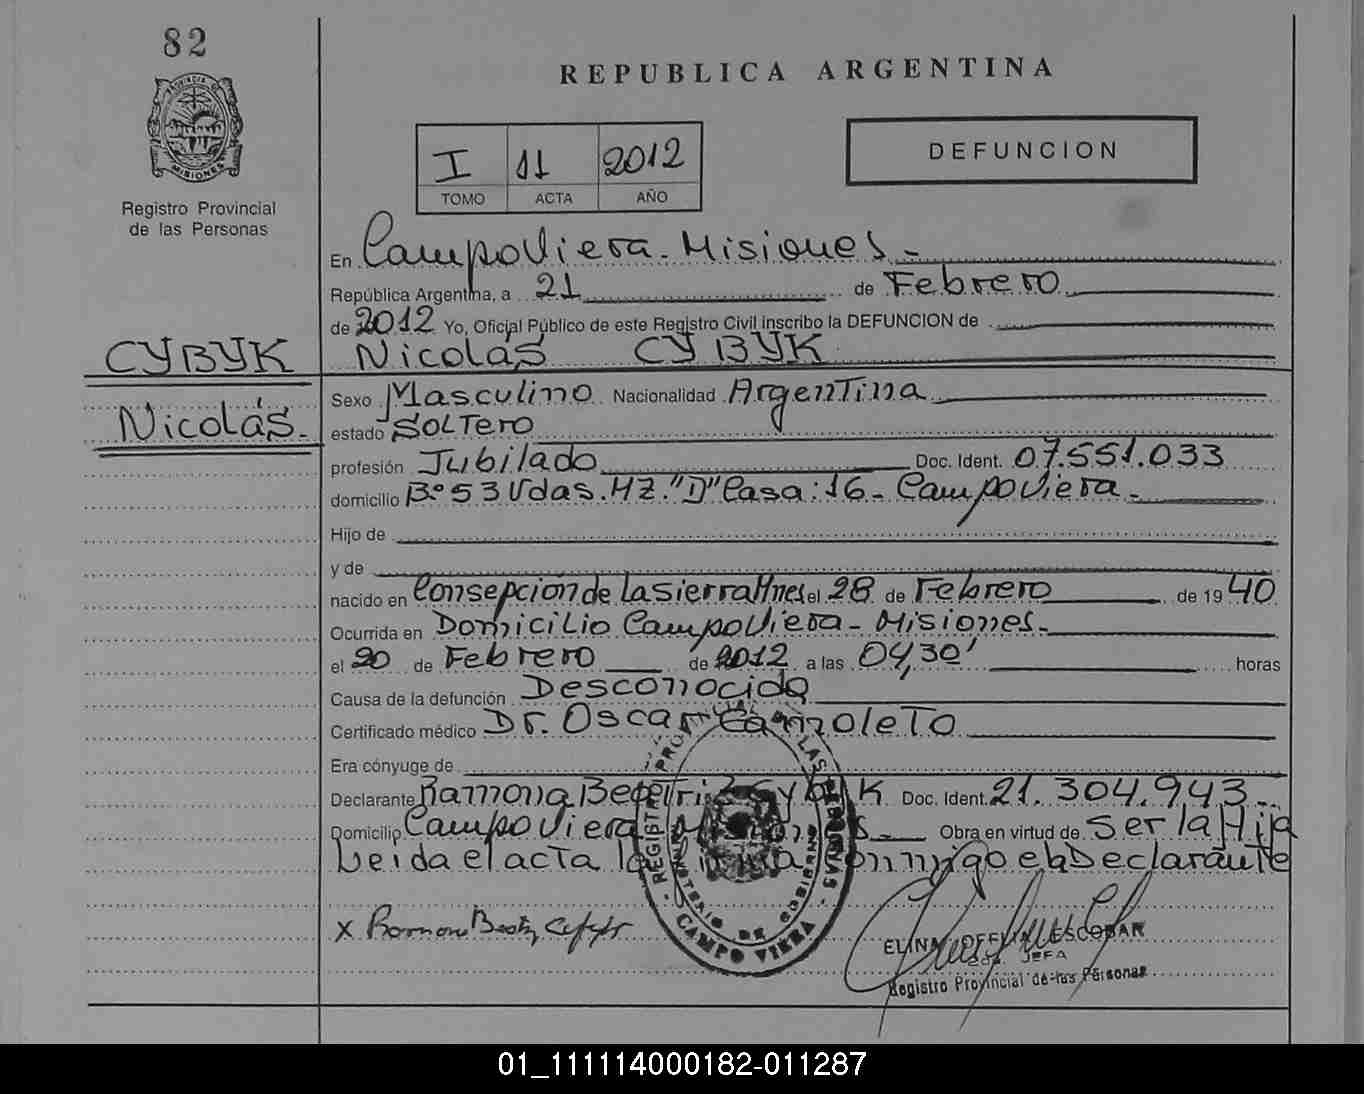 82
PROVINCIA DE
MISIONES
Registro Provincial
de las Personas
REPUBLICA ARGENTINA
I 11 2012
TOMO ACTA AÑO
DEFUNCION
En Campo Viera - Misiones -
República Argentina, a 21 de Febrero
de 2012 Yo, Oficial Público de este Registro Civil inscribo la DEFUNCION de
Nicolás CYBYK
CYBYK
Nicolás.
Sexo Masculino Nacionalidad Argentina
estado SOLTERO
profesión Jubilado Doc. Ident. 07.551.033
domicilio B.º 53 Vdas. MZ. "D" Casa: 16 - Campo Viera -
Hijo de
y de
nacido en Consepción de La Sierra Mnes el 28 de Febrero de 1940
Ocurrida en Domicilio Campo Viera - Misiones -
el 20 de Febrero de 2012 a las 04,30' horas
Causa de la defunción Desconocida
Certificado médico Dr. Oscar
Era cónyuge de
Declarante Ramona Beatriz Cybyk Doc. Ident. 21.304.943 -
Domicilio Campo Viera Misiones - Obra en virtud de ser la Hija
Leida el acta la firma conmigo el la Declarante
REGISTRO PROVINCIAL DE LAS PERSONAS
MINISTERIO DE GOBIERNO
- CAMPO VIERA -
x Ramona Beatriz Cybyk
ELINA OFELIA ESCOBAR
JEFA
Registro Provincial de las Personas
01_111114000182-011287